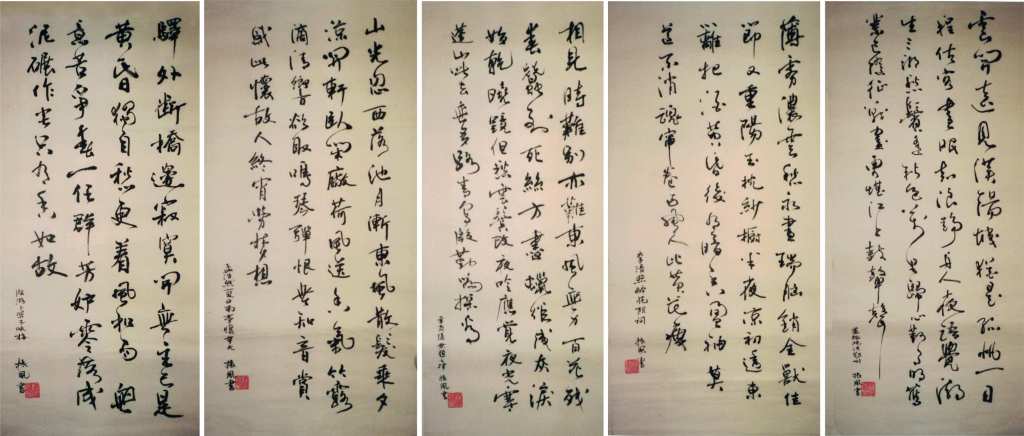 雲開遠見漢陽城猶是孤帆一日
程估客晝眠知浪靜舟人夜語覺潮
生三湘愁鬢逢秋色萬里歸心對月明舊
業已隨征戰盡更堪江上鼓鼙聲
盧綸晚次鄂州 振風書
薄霧濃雲愁永晝瑞腦銷金獸佳
節又重陽玉枕紗櫥半夜涼初透東
籬把酒黃昏後有暗香盈袖莫
道不消魂簾卷西風人比黃花瘦
李清照醉花陰詞
振風書
相見時難別亦難東風無力百花殘
春蠶到死絲方盡蠟炬成灰淚
始乾曉鏡但愁雲鬢改夜吟應覺月光寒
蓬山此去無多路青鳥殷勤為探看
李商隱無題七律 振風書
山光忽西落池月漸東上散髮乘夕
涼開軒臥閑敞荷風送香氣竹露
滴清響欲取鳴琴彈恨無知音賞
感此懷故人終宵勞夢想
孟浩然夏日南亭懷辛大 振風書
驛外斷橋邊寂寞開無主已是
黃昏獨自愁更著風和雨無
意苦爭春一任群芳妒零落成
泥碾作塵只有香如故
陸游卜算子詠梅 振風書